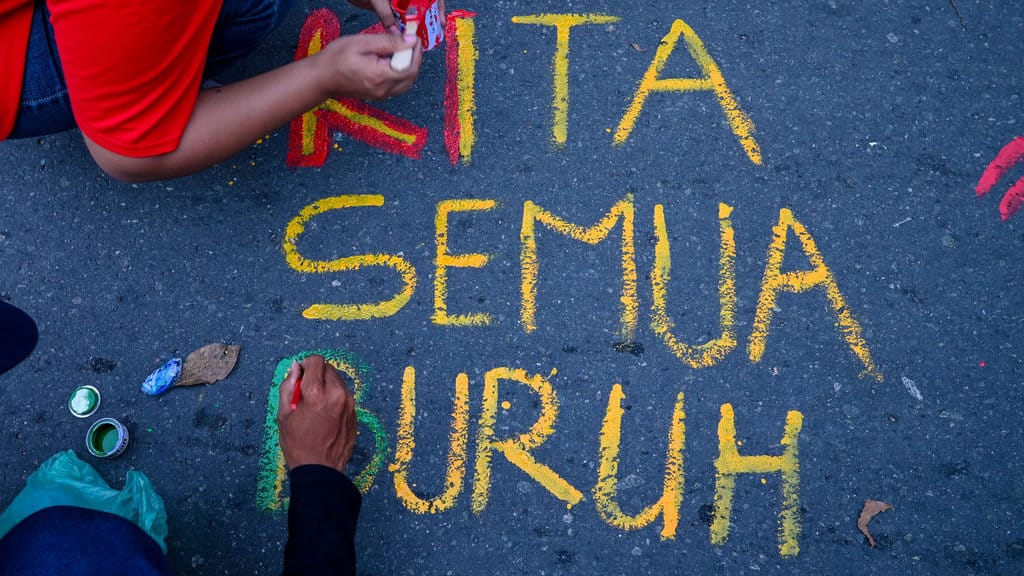 KITA
SEMUA
BURUH